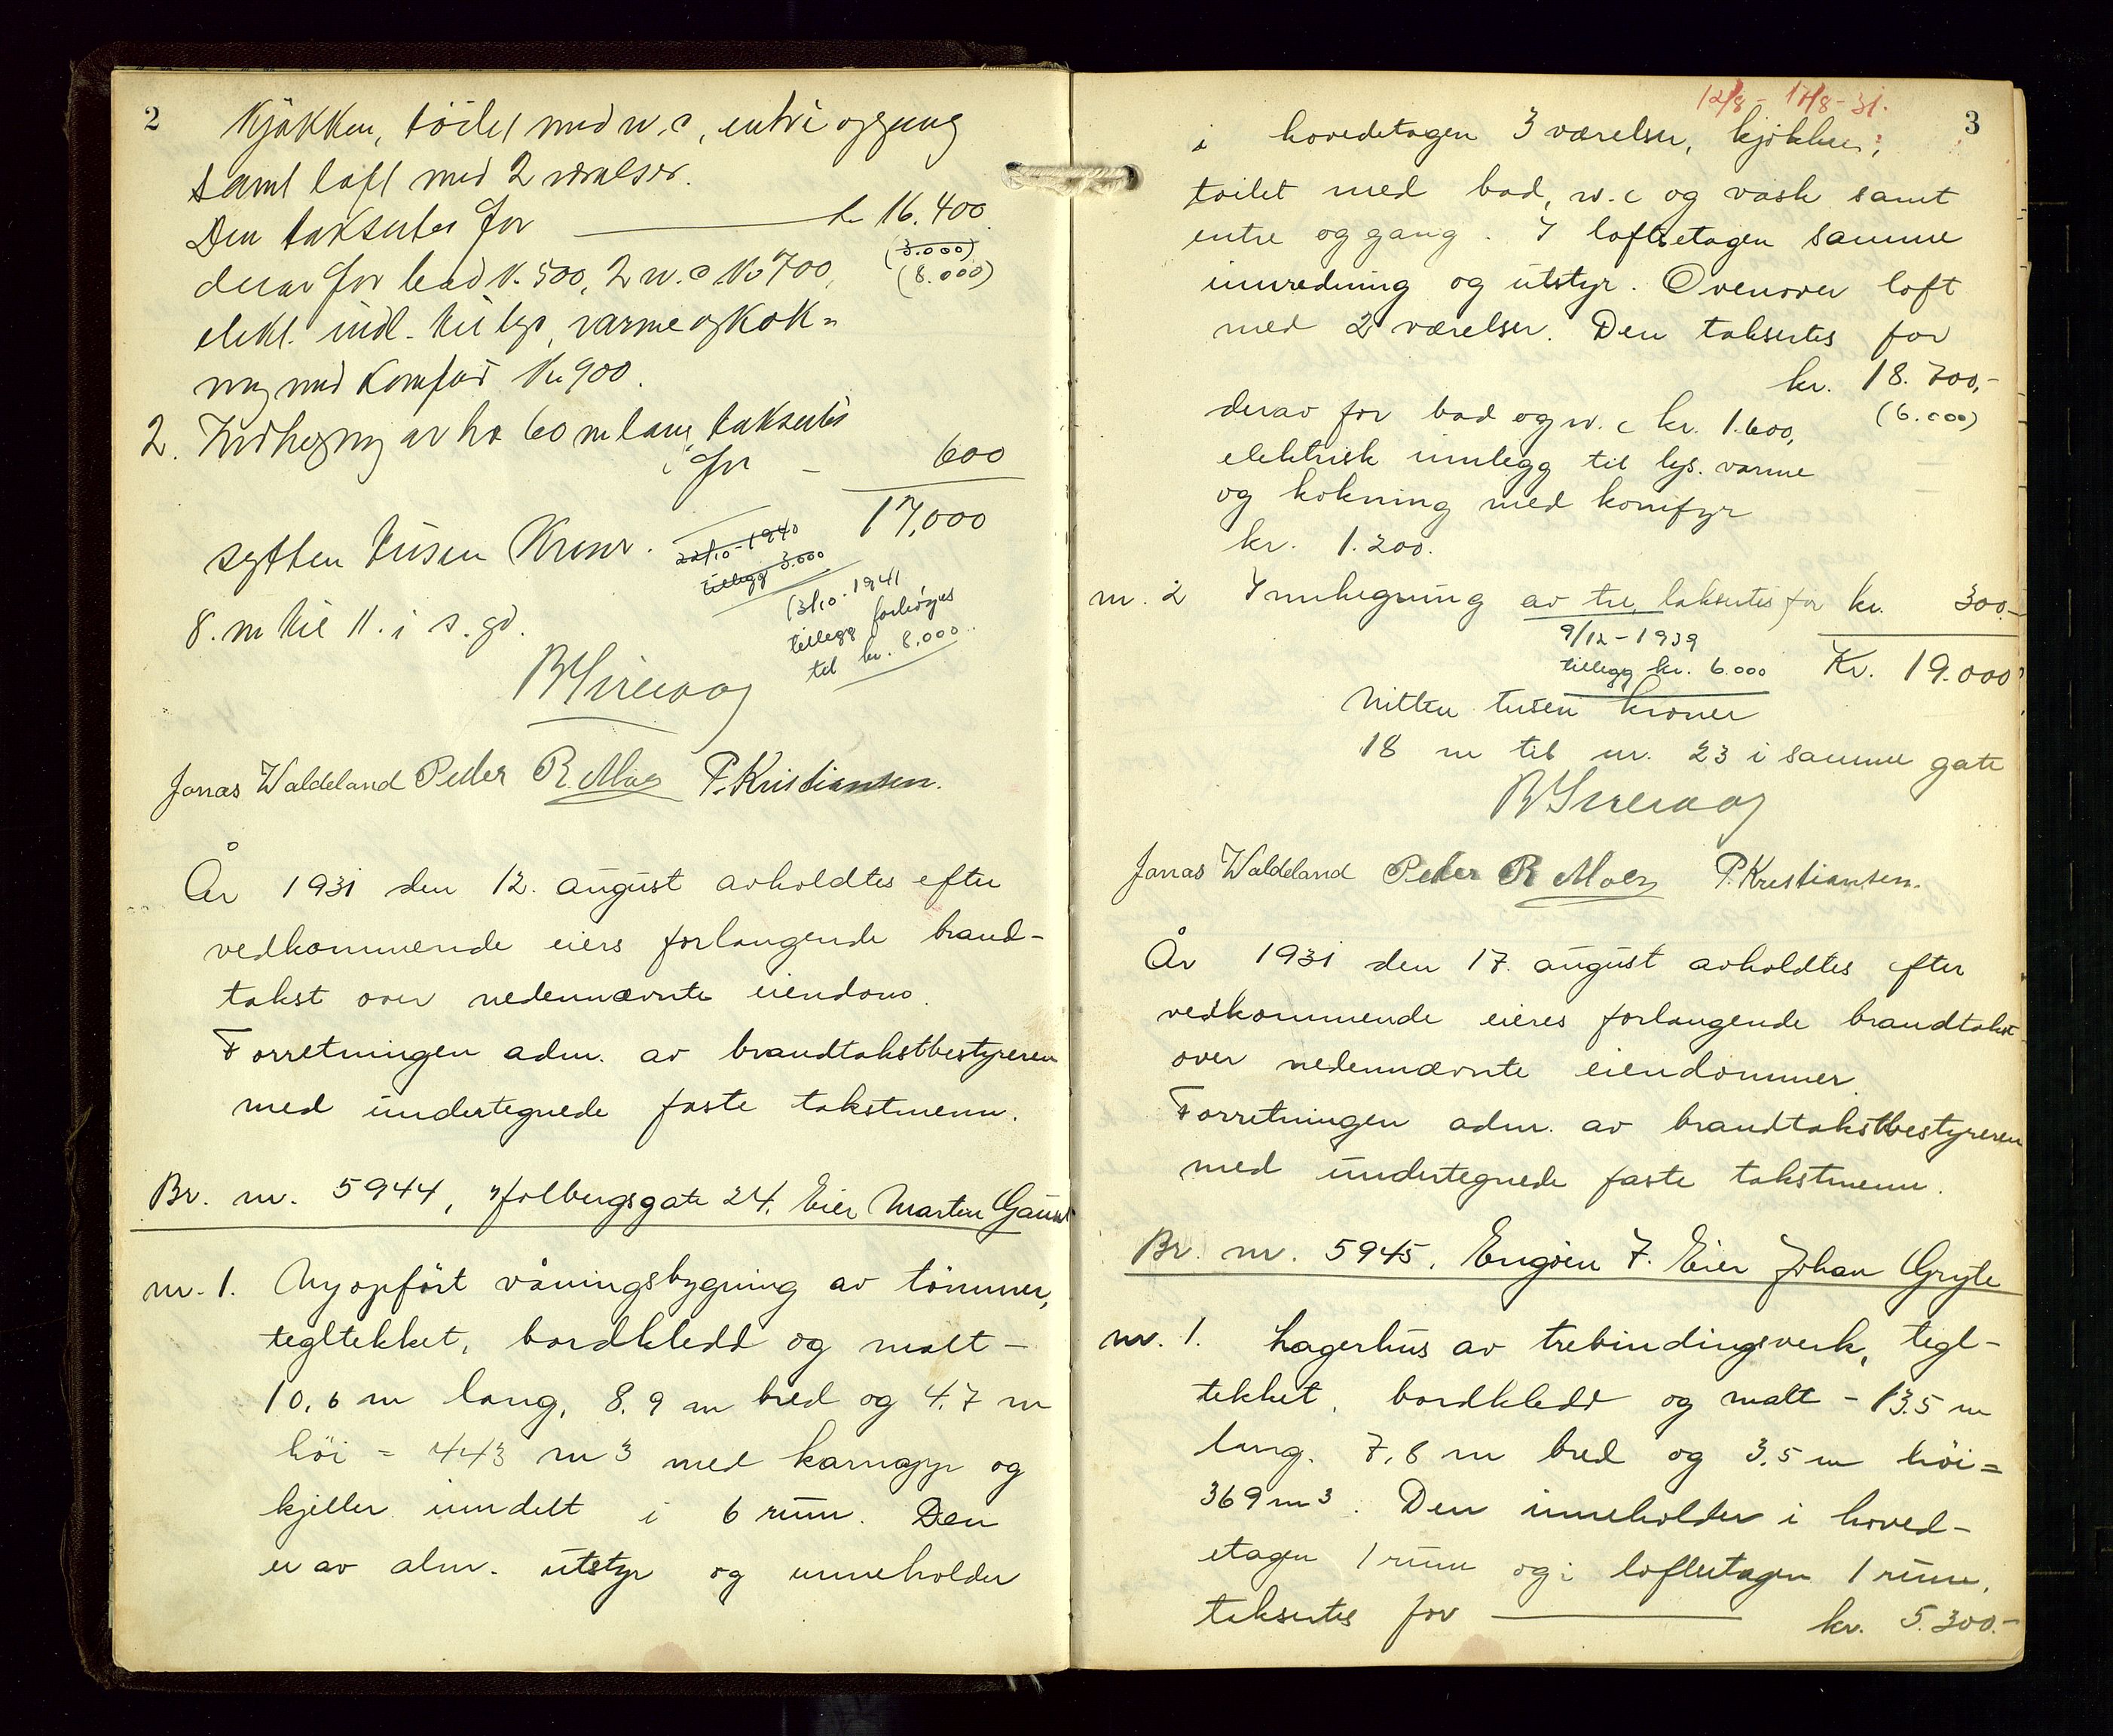 2
Kjøkken, töilet med w.c, entré og gang
samt loft med 2 værelser.
Den takseres for kr 16.400
(3.000)
derav for bad kr. 500, 2 w.c kr 700,
(8.000)
elekt. indl. til lys, varme og kok-
ning med komfur kr 900.
2. Indhegning av tre 60 m lang, takseres
for - 600
17,000
sytten tusen Kroner.
22/10-1940
tillegg 3.000
13/10-1941
tillegg forhöyes
til kr. 8.000.
8. m til 11. i s. gd.
Jonas Waldeland Peder R. Moen P. Kristiansen.
År 1931 den 12. august avholdtes efter
vedkommende eiers forlangende brand-
takst over nedennævnte eiendom.
Forretningen adm. av brandtakstbestyreren
med undertegnede faste takstmenn.
Br. nr. 5944, Holbergsgate 24. Eier Marten
nr. 1. Nyopfört våningsbygning av tömmer,
tegltekket, bordkledd og malt -
10,6 m lang, 8.9 m bred og 4.7 m
höi = 443 m3 med karnapp og
kjeller inndelt i 6 rum. Den
er av alm. utstyr og inneholder
12/8 - 17/8-31.
3
i hovedetagen 3 værelser, kjökken,
toilet med bad, w.c og vask samt
entre og gang. I loftsetagen samme
innredning og utstyr. Ovenover loft
med 2 værelser. Den takseres for
kr. 18.700,-
derav for bad og w.c kr. 1.600, (6.000)
elektrisk innlegg til lys, varme
og kokning med komfyr
kr. 1.200.
nr. 2 Innhegning av tre, takseres for kr. 300.-
9/12-1939
tillegg kr. 6.000 Kr. 19.000
Nitten tusen kroner
18 m til nr. 23 i samme gate
Jonas Waldeland Peder R Moen P. Kristiansen.
År 1931 den 17. august avholdtes efter
vedkommende eieres forlangende brandtakst
over nedennævnte eiendommer.
Forretningen adm. av brandtakstbestyreren
med undertegnede faste takstmenn.
Br. nr. 5945. Engöien 7. Eier Johan Gryte
nr. 1. Lagerhus av trebindingsverk, tegl-
tekket, bordkledd og malt - 13.5 m
lang. 7,8 m bred og 3,5 m höi =
369 m3. Den inneholder i hoved-
etagen 1 rum og i loftsetagen 1 rum,
takseres for kr. 5.300.-